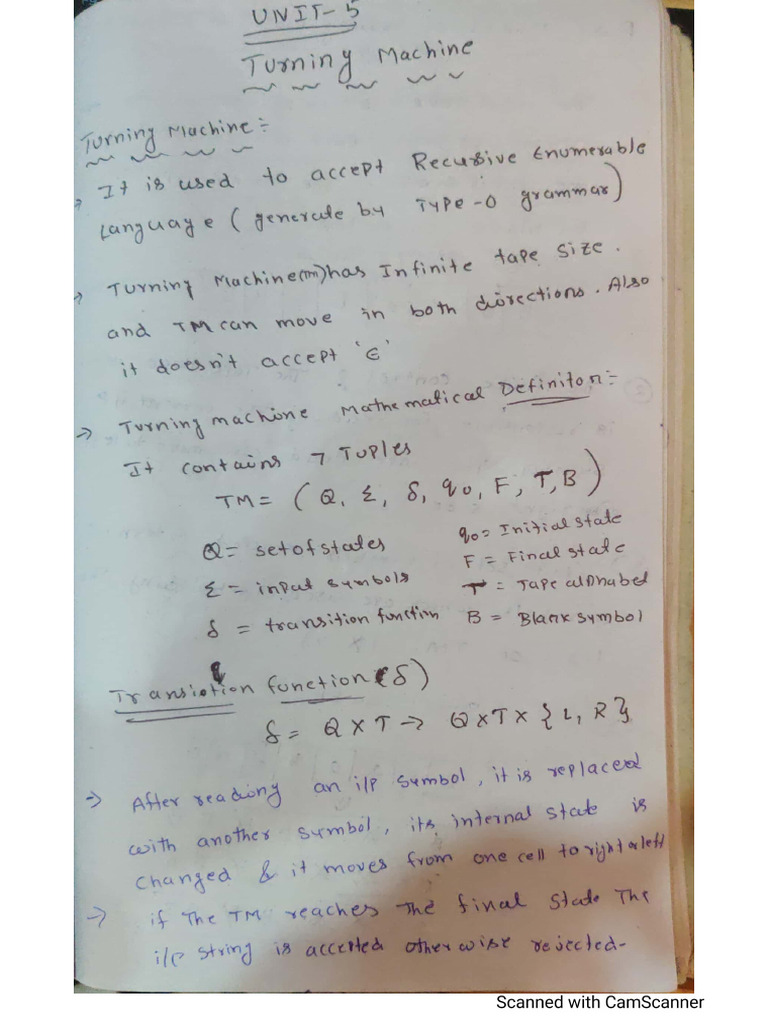 UNIT-5
Turning Machine
Turning Machine:-
→ It is used to accept Recursive Enumerable
Language (generate by TYPE-0 grammar)
→ Turning Machine(TM) has Infinite tape size.
and TM can move in both directions. Also
it doesn't accept 'ε'
→ Turning machine Mathematical Definiton:-
It contains 7 Tuples
TM = (Q, Σ, δ, q0, F, T, B)
Q = set of states
q0 = Initial state
F = Final state
Σ = input symbols
T = Tape alphabet
δ = transition function
B = Blank symbol
Transiotion function (δ)
δ = Q X T → Q X T X {L, R}
→ After reading an i/p symbol, it is replaced
with another symbol, its internal state is
changed & it moves from one cell to right or left
→ if The TM reaches The final state The
i/p string is accepted otherwise rejected-
Scanned with CamScanner